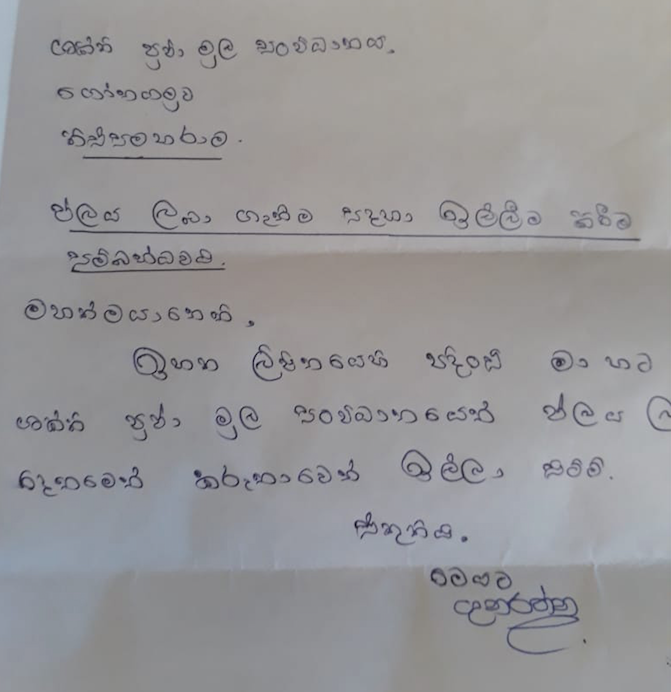 ශක්ති ප්‍රජා මුල සංවිධානය.
ගෝනගමුව
තිස්සමහාරාම.
ජලය ලබා ගැනීම සඳහා ඉල්ලීම් කිරීම
සම්බන්ධවයි.
මහත්මයාණෙනි,
ඉහත ලිපිනයෙහි පදිංචි මා හට
ශක්ති ප්‍රජා මුල සංවිධානයෙන් ජලය ල
දෙනමෙන් කරුනාවෙන් ඉල්ලා සිටිමි.
ස්තූතියි.
මෙයට